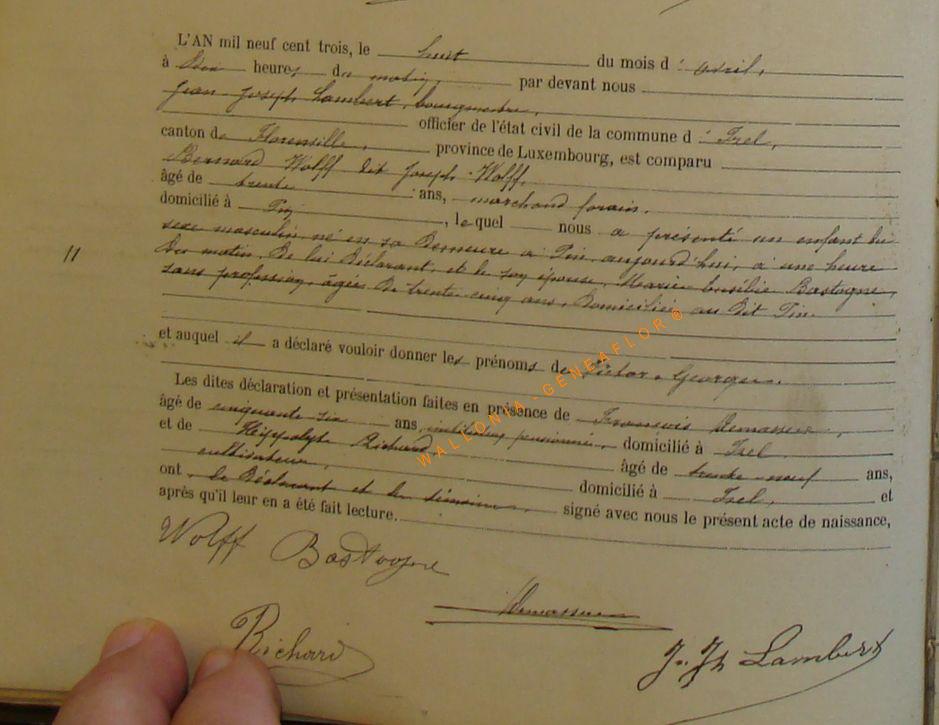 L'AN mil neuf cent trois, le huit du mois d' avril,
à Dix heures du matin, par devant nous
Jean Joseph Lambert, bourgmestre,
officier de l'état civil de la commune d' Izel,
canton de Florenville, province de Luxembourg, est comparu
Bernard Wolff dit Joseph Wolff,
âgé de trente ans, marchand forain,
domicilié à Pin, lequel nous a présenté un enfant du
sexe masculin né en sa Demeure à Pin, aujourd'hui, à une heure
11
Du matin, De lui Déclarant, et de son épouse, Marie Bastogne,
sans profession, âgée De trente cinq ans, Domiciliée au dit Pin.
et auquel il a déclaré vouloir donner les prénoms de Victor, Georges.
Les dites déclaration et présentation faites en présence de François Demasseux,
âgé de cinquante six ans, instituteur pensionné, domicilié à Izel
et de Hippolyte Richard âgé de trente-neuf ans,
cultivateur, domicilié à Izel, et
ont le Déclarant et les témoins signé avec nous le présent acte de naissance,
après qu'il leur en a été fait lecture.
Wolff Bastogne
Demasseux
Richard
J. Jh Lambert
WALLONIA-GENEAFLOR®